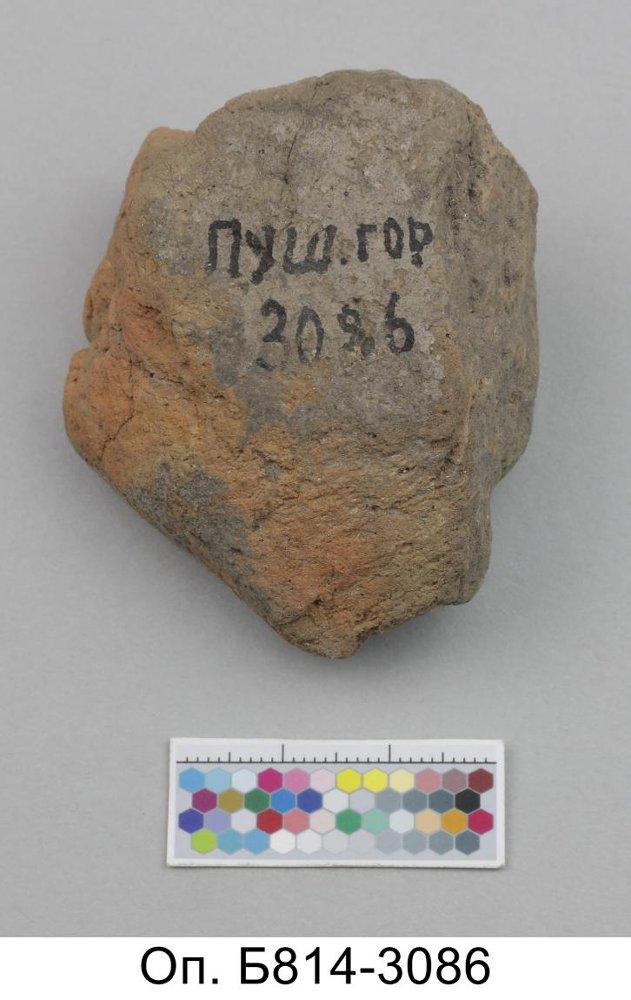 ПУШ.ГОР
3086
Оп. Б814-3086